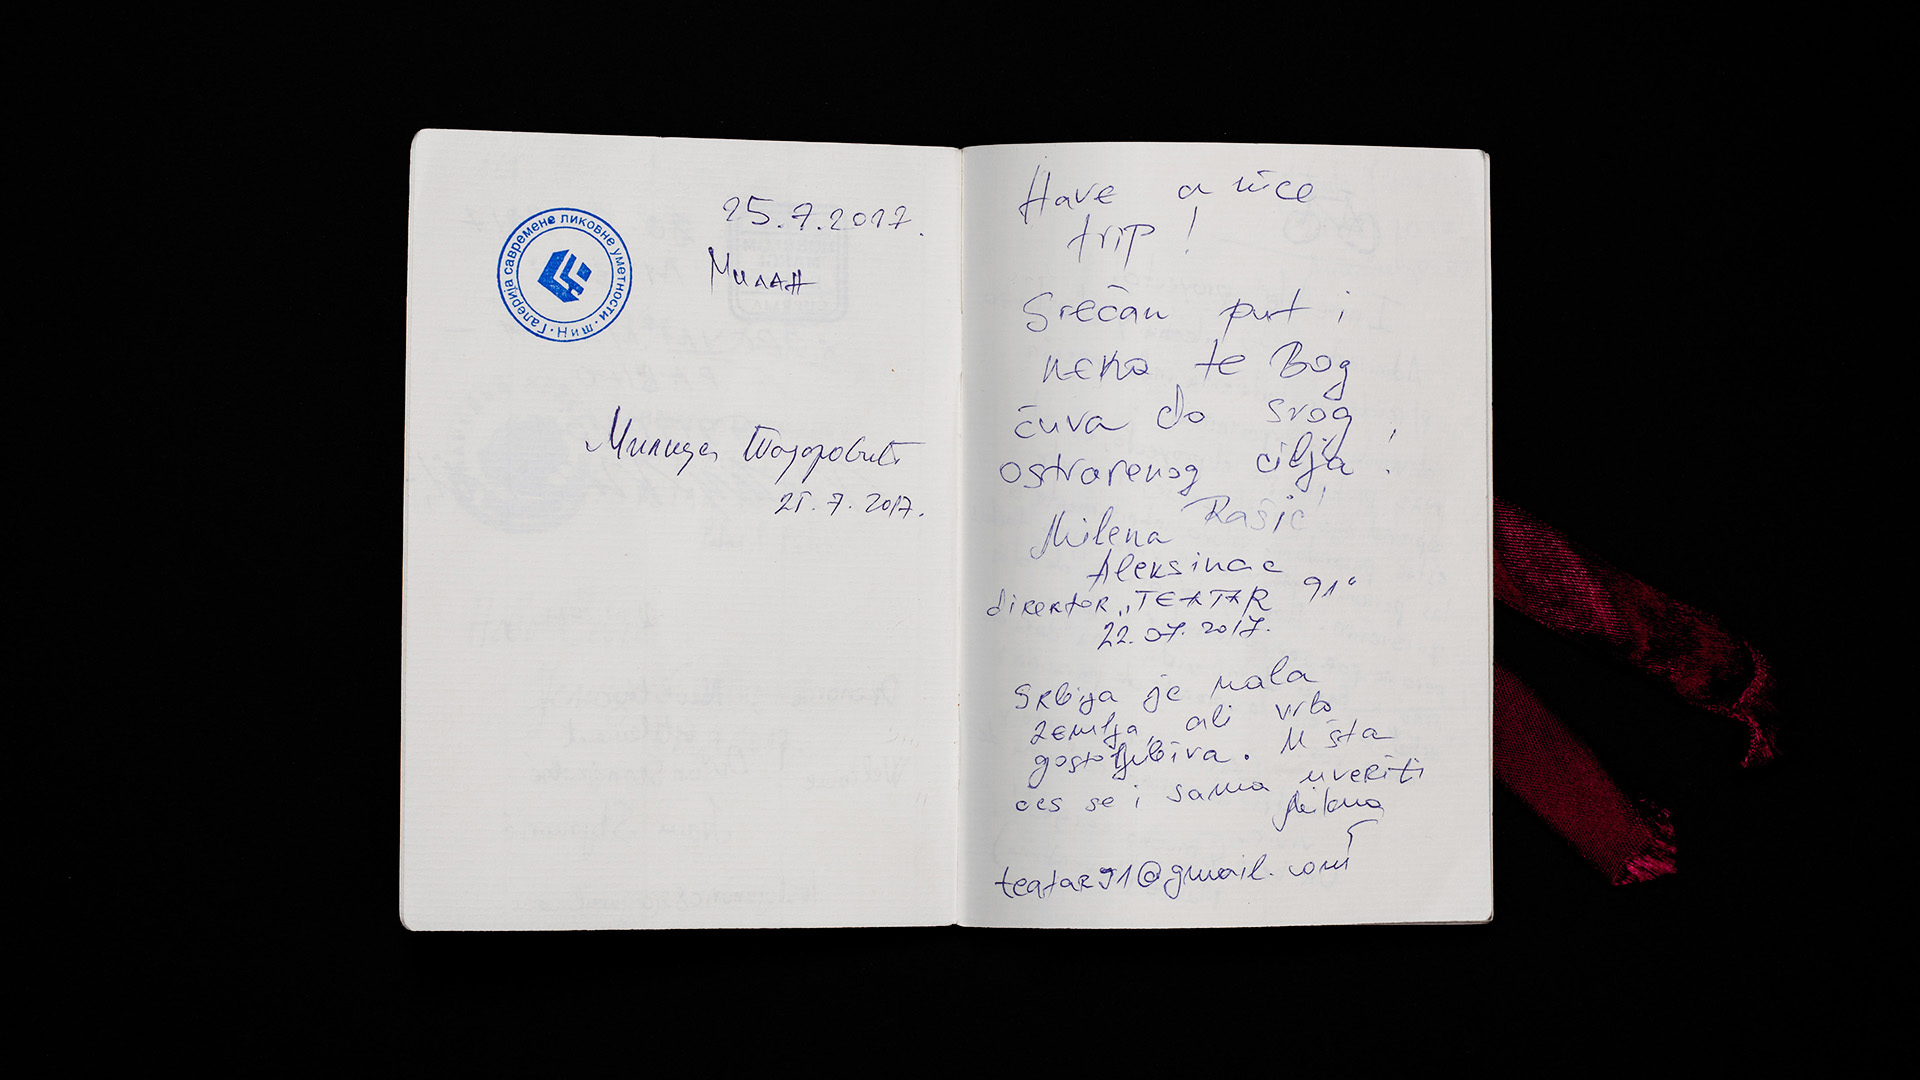 Галерија савремене ликовне уметности · Ниш ·
25.7.2017.
Милан
Милица Тодоровић
25.7.2017.
Have a nice
trip!
Srećan put i
neka te Bog
čuva do svog
ostvarenog cilja!
Milena Rašić
Aleksinac
direktor „TEATAR 91"
22.07.2017.
Srbija je mala
zemlja, ali vrlo
gostoljubiva. U šta
ćeš se i sama uveriti
Milena
teatar91@gmail.com